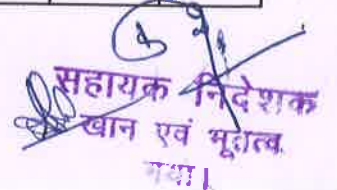 सहायक निदेशक
खान एवं भूतत्व
गया।